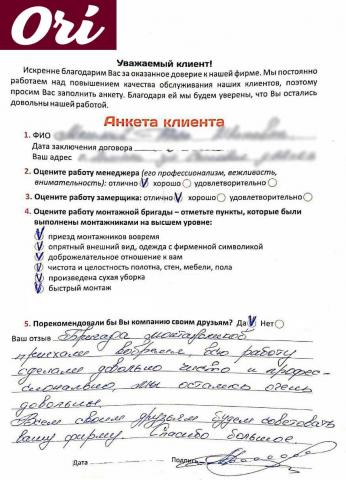 Ori
Уважаемый клиент!
Искренне благодарим Вас за оказанное доверие к нашей фирме. Мы постоянно
работаем над повышением качества обслуживания наших клиентов, поэтому
просим Вас заполнить анкету. Благодаря ей мы будем уверены, что Вы остались
довольны нашей работой.
Анкета клиента
1. ФИО
Дата заключения договора
Ваш адрес
2. Оцените работу менеджера (его профессионализм, вежливость,
внимательность): отлично хорошо удовлетворительно
3. Оцените работу замерщика: отлично хорошо удовлетворительно
4. Оцените работу монтажной бригады – отметьте пункты, которые были
выполнены монтажниками на высшем уровне:
приезд монтажников вовремя
опрятный внешний вид, одежда с фирменной символикой
доброжелательное отношение к вам
чистота и целостность полотна, стен, мебели, пола
произведена сухая уборка
быстрый монтаж
5. Порекомендовали бы Вы компанию своим друзьям? Да Нет
Ваш отзыв Бригада монтажников
приехали вовремя, всю работу
сделали довольно чисто и профес-
сионально, мы остались очень
довольны.
Всем своим друзьям будем советовать
вашу фирму. Спасибо большое.
Дата Подпись